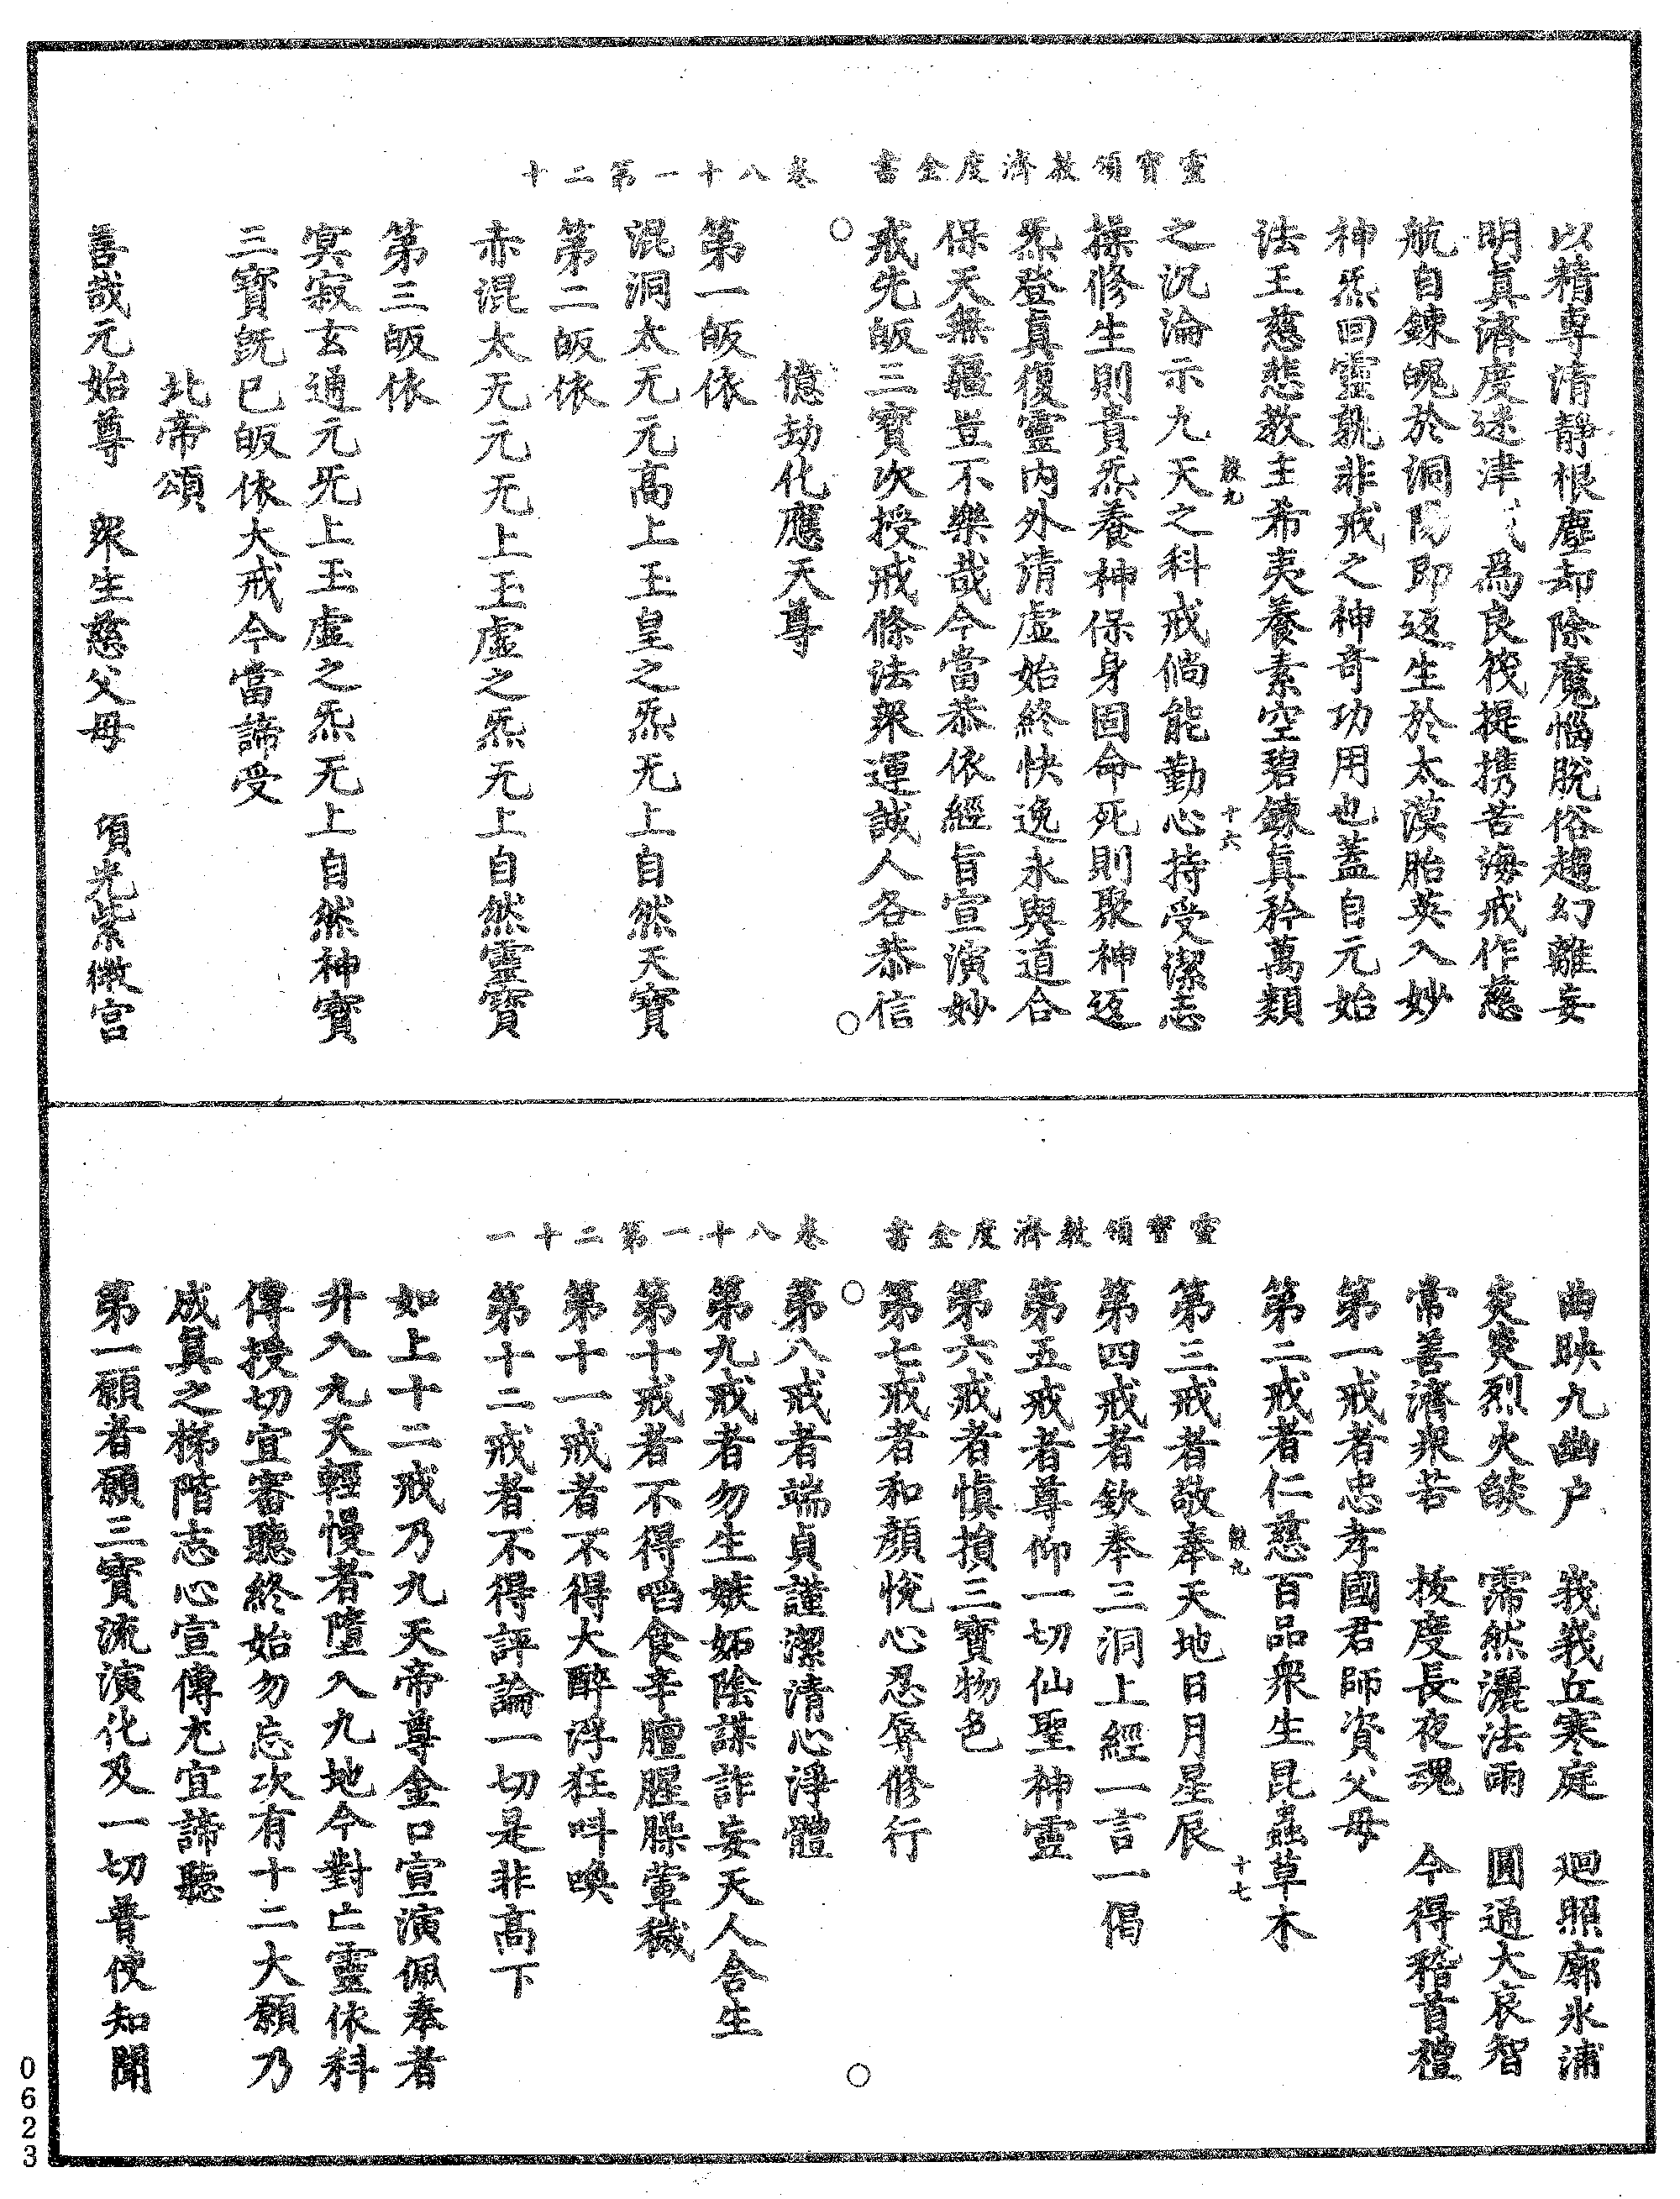 靈寶領教濟度金書 卷八十一第二十
以精專清靜根塵却除魔惱脫俗趨幻離妄
明真濟度迷津 為良筏提携苦海戒作慈
航自鍊魄於洞陽即返生於太漠胎英入妙
神炁回靈孰非戒之神奇功用也蓋自元始
法王慈悲教主希夷養素空碧鍊真矜萬類
殷九 十六
之沉淪示九天之科戒倘能勤心持受潔志
操修生則貴炁養神保身固命死則聚神返
炁登真復靈內外清虛始終快逸永與道合
保天無疆豈不樂哉今當恭依經旨宣演妙
戒先皈三寶次授戒條法眾運誠人各恭信
億劫化應天尊
第一皈依
混洞太无元高上玉皇之炁无上自然天寶
第二皈依
赤混太无元无上玉虛之炁无上自然靈寶
第三皈依
冥寂玄通元旡上玉虛之炁无上自然神寶
三寶既已皈依大戒今當諦受
北帝頌
善哉元始尊 眾生慈父母 項光紫微宮
靈寶領教濟度金書 卷八十一第二十一
曲映九幽戶 峩峩丘寒庭 迴照廓氷浦
炎炎烈火燄 霈然灑法雨 圓通大哀智
常善濟眾苦 拔度長夜魂 今得稽首禮
第一戒者忠孝國君師資父母
第二戒者仁慈百品眾生昆蟲草木
殷九 十七
第三戒者敬奉天地日月星辰
第四戒者欽奉三洞上經一言一偈
第五戒者尊仰一切仙聖神靈
第六戒者慎損三寶物色
第七戒者和顏悅心忍辱修行
第八戒者端貞謹潔清心淨體
第九戒者勿生嫉妬陰謀詐妄天人含生
第十戒者不得啗食辛膻腥臊葷穢
第十一戒者不得大醉浮狂呌喚
第十二戒者不得評論一切是非高下
如上十二戒乃九天帝尊金口宣演佩奉者
升入九天輕慢者墮入九地今對亡靈依科
傳授切宜審聽終始勿忘次有十二大願乃
成真之梯階志心宣傳尤宜諦聽
第一願者願三寶流演化及一切普使知聞
0623